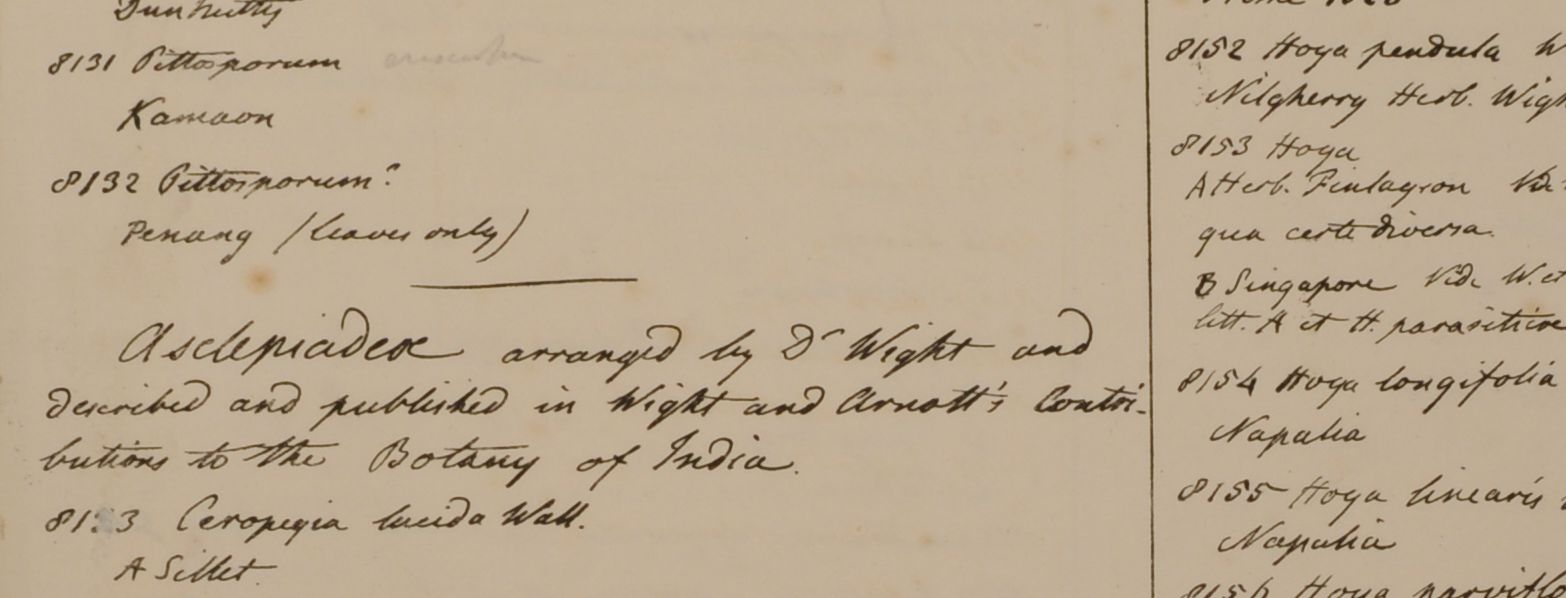 8131 Pittosporum
Kamaon
8132 Pittosporum?
Penang (leaves only)
Asclepiadeae arranged by Dr Wight and
described and published in Wight and Arnott's Contri-
butions to the Botany of India.
8133 Ceropegia lucida Wall.
A Sillet
8152 Hoya pendula W
Nilgherry Herb. Wigh
8153 Hoya
A Herb. Finlayson Vide
qua certe diversa.
B Singapore Vide W. et
litt. A et H. parasitica
8154 Hoya longifolia
Napalia
8155 Hoya linearis
Napalia
8156 Hoya parvifl